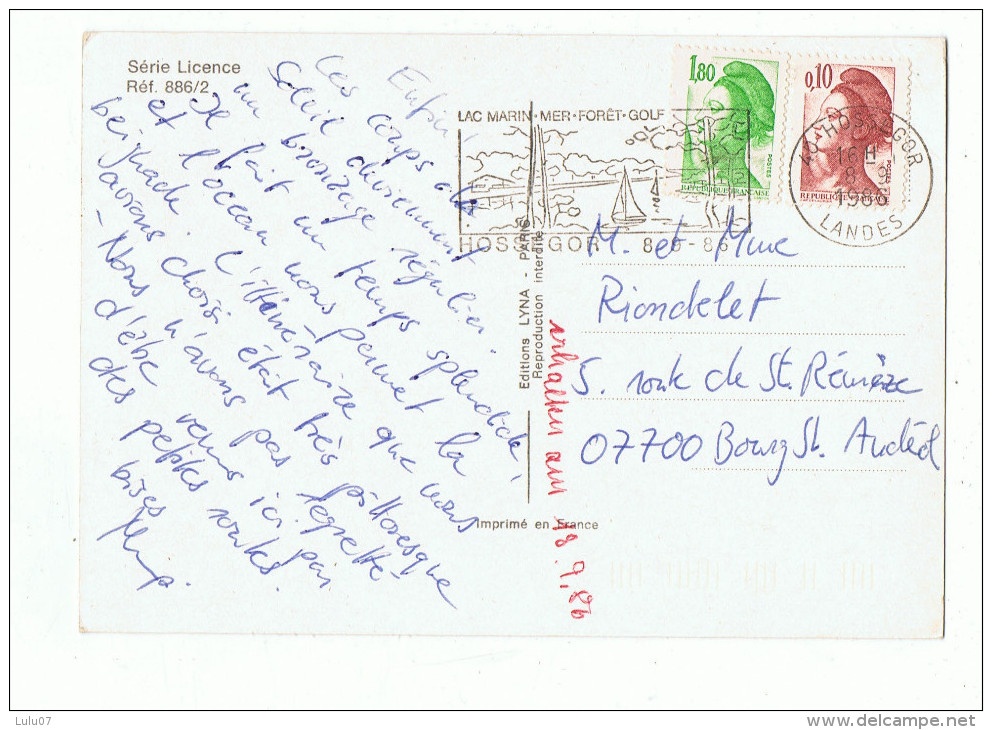 Série Licence
Réf. 886/2
Enfin!
Les coups de
Soleil deviennent
un bronzage régulier.
Il fait un temps splendide,
et l'océan nous permet la
baignade. L'itinéraire que nous
avions choisi était très pittoresque
- Nous n'avons pas regretté
d'être venus ici par
des petites routes.
bises
LAC MARIN·MER·FORÊT·GOLF
HOSSEGOR 8-9-86
1,80
POSTES
REPUBLIQUE FRANÇAISE
0,10
POSTES
REPUBLIQUE FRANÇAISE
40 HOSSEGOR
16 H
8 9
1986
LANDES
Editions LYNA - PARIS
Reproduction interdite
erhalten am 18.9.86
M. et Mme
Riondelet
5. route de St. Rémèze
07700 Bourg St. Andéol
Imprimé en France
Lulu07
delcampe.net